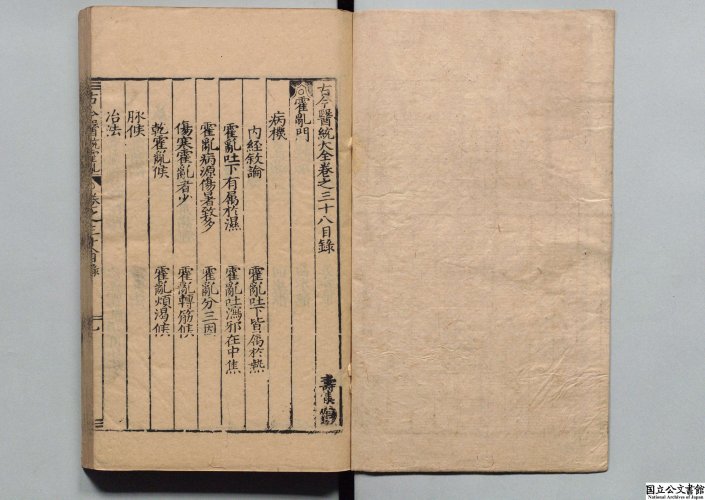 古今醫統大全卷之三十八目錄
霍亂門
病機
內經敘論
霍亂吐下皆屬於熱
霍亂吐下有屬於濕
霍亂吐瀉邪在中焦
霍亂病源傷暑致多
霍亂分三因
傷寒霍亂者少
霍亂轉筋候
乾霍亂候
霍亂煩渴候
脉候
治法
国立公文書館
National Archives of Japan